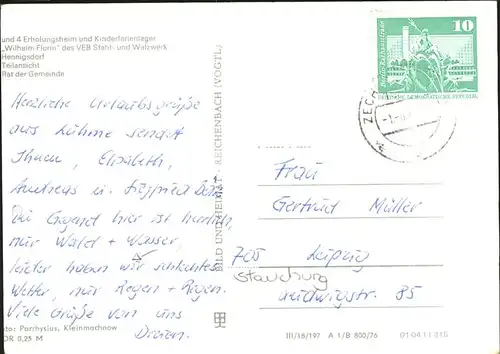 und 4 Erholungsheim und Kinderferienlager
„Wilhelm-Florin" des VEB Stahl- und Walzwerk
Hennigsdorf
Teilansicht
Rat der Gemeinde
Herzliche Urlaubsgrüße
aus Lühme sendet
Ihnen, Elisabeth,
Andreas u. Siegfried
Die Gegend hier ist herrlich,
nur Wald + Wasser,
leider haben wir schlechtes
Wetter, nur Regen + Regen.
Viele Grüße von uns
Dreien.
Foto: Parrhysius, Kleinmachnow
0,25 M
BILD UND HEIMAT REICHENBACH (VOGTL)
10
DEUTSCHE DEMOKRATISCHE REPUBLIK
ZECH
Frau
Gertrud Müller
705 Leipzig
Stauchung
Ludwigstr. 85
III/18/197 A 1/B 800/76 01 04 11 216